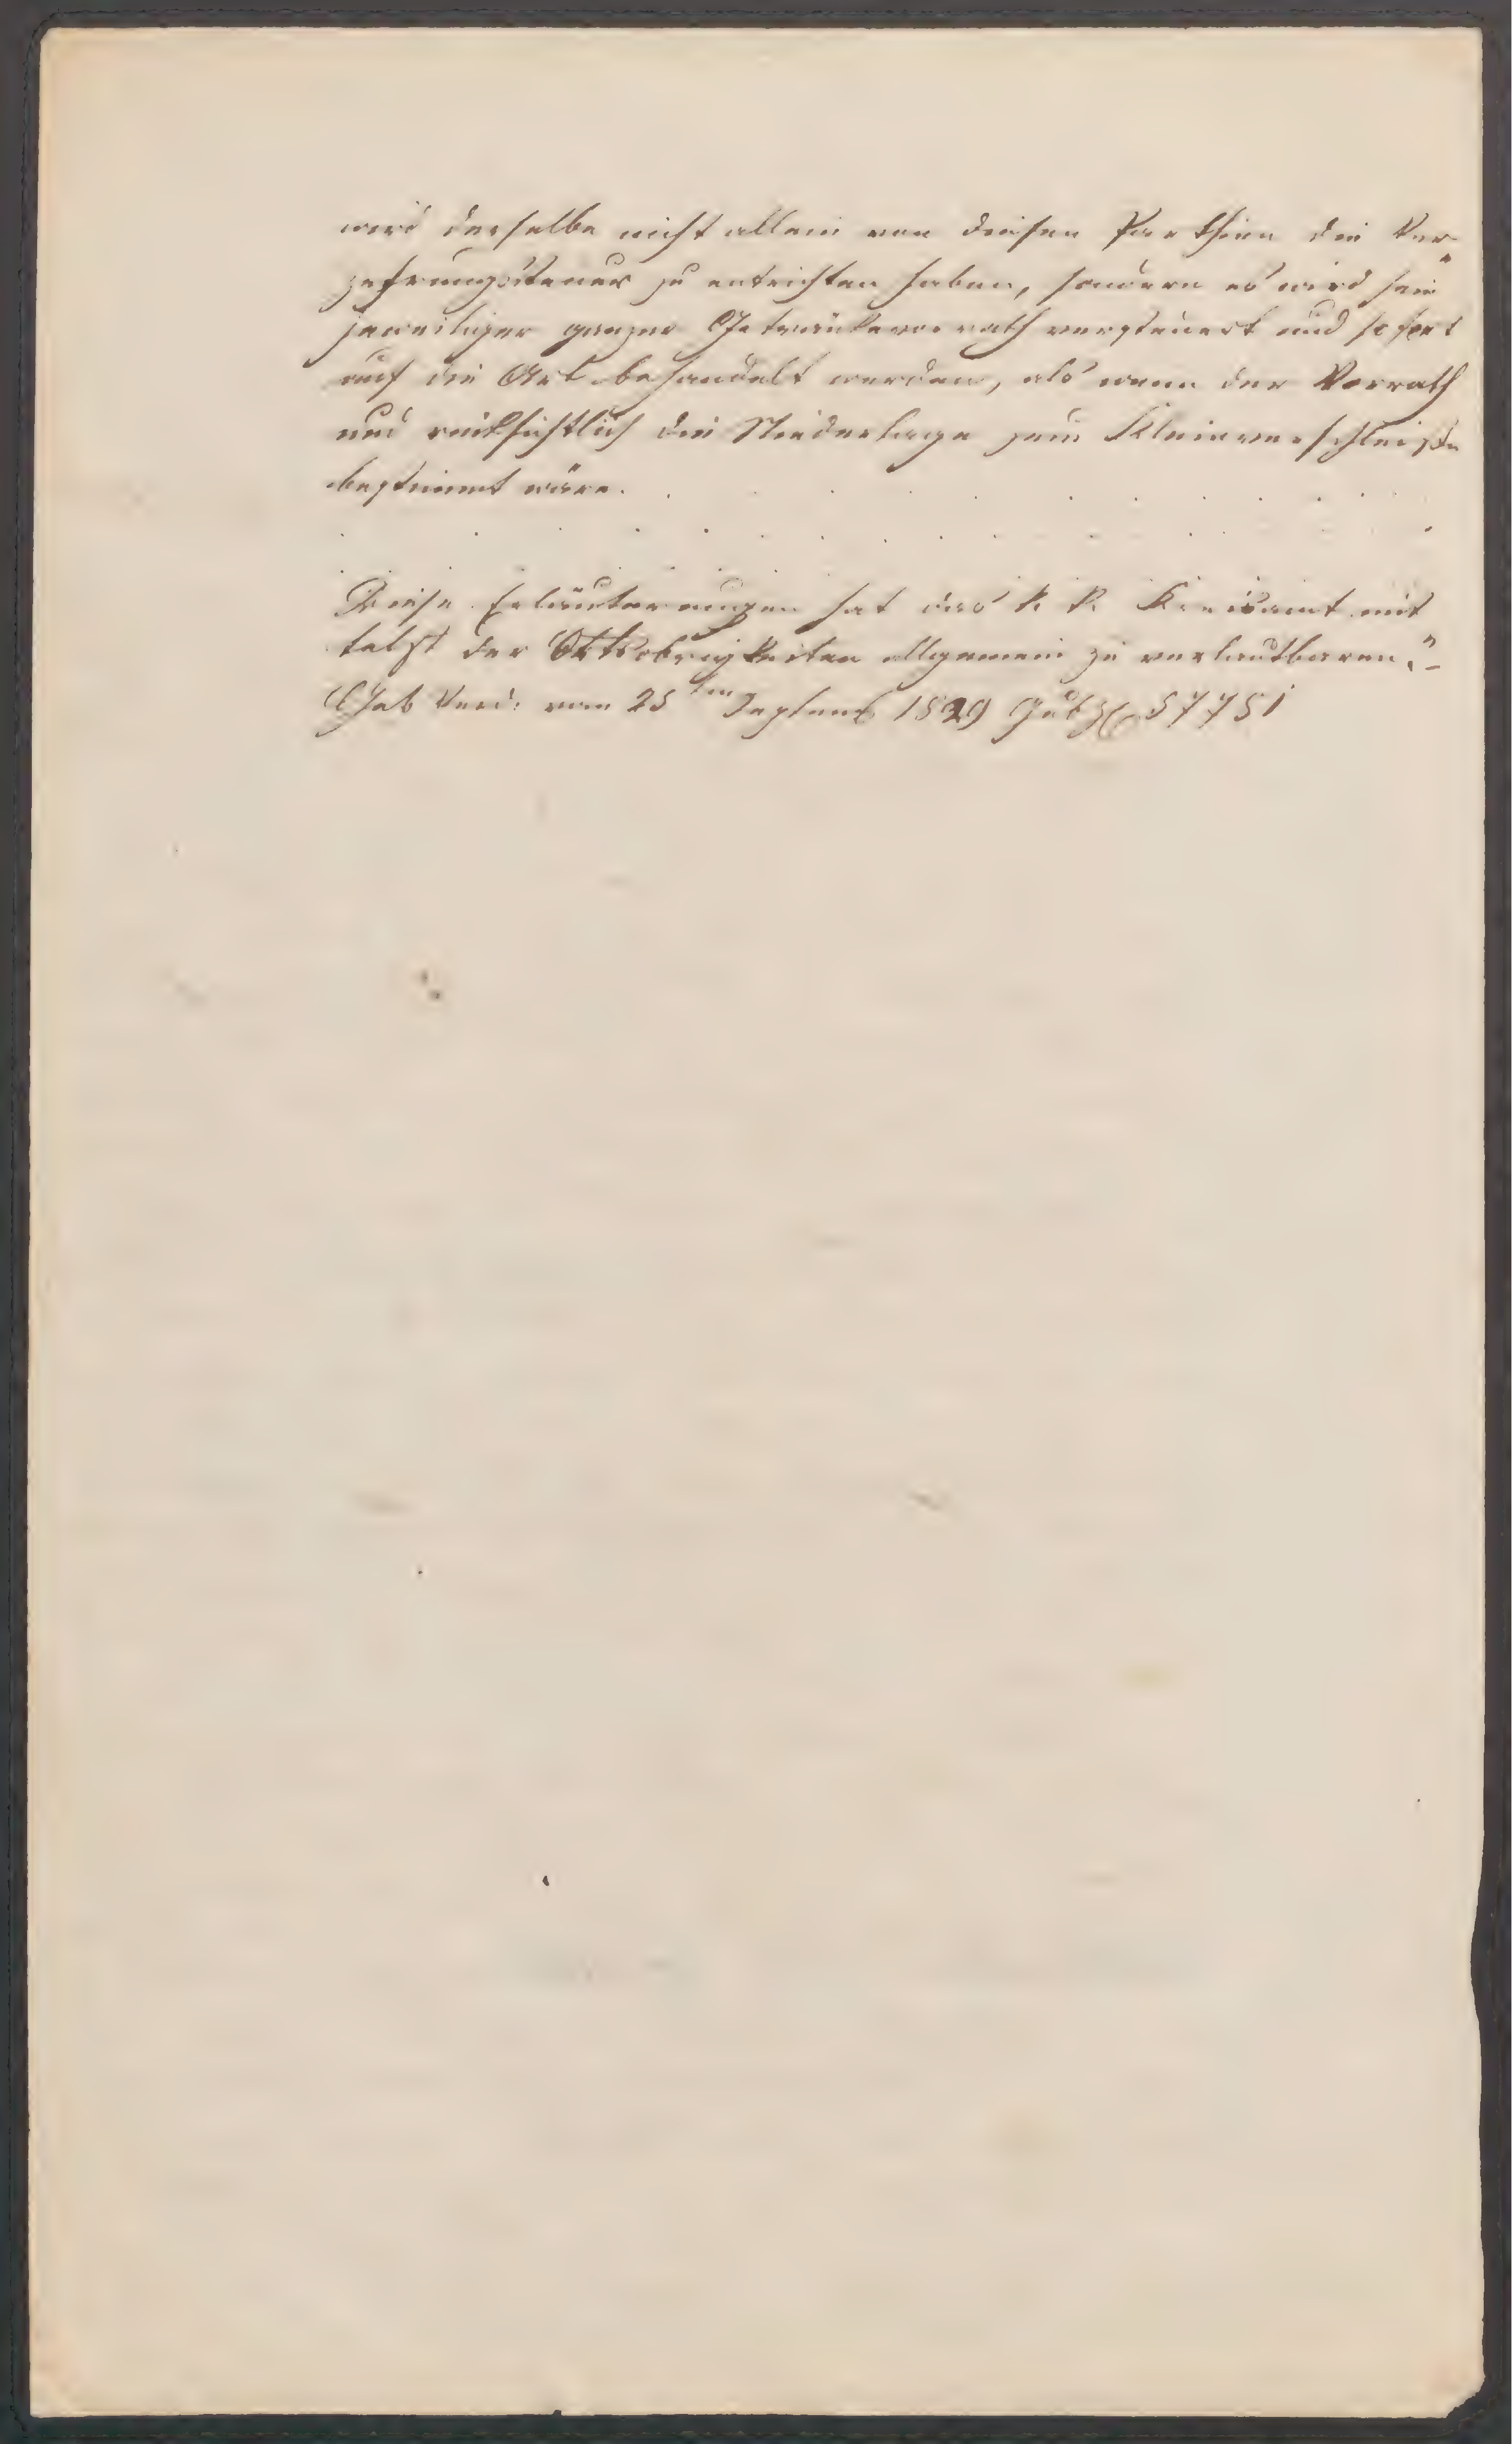 wird derselbe nicht allein von diesen Parthien die Ver-
zehrungssteuer zu entrichten haben, sondern es wird sein
jeweiliger ganzer Getränkevorrath versteuert und sofort
auf die Art behandelt werden, als wenn der Vorrath
und rücksichtlich die Niederlage zum Kleinverschleiße
bestimmt wäre. . . . . . . . . .
. . . . . . . . . . . .
Diese Erläuterungen hat das k. k. Kreisamt mit
telst der Ortsobrigkeiten allgemein zu verlautbaren."-
Gub Verd: vom 25ten Septemb 1829 Gub Zl 57751